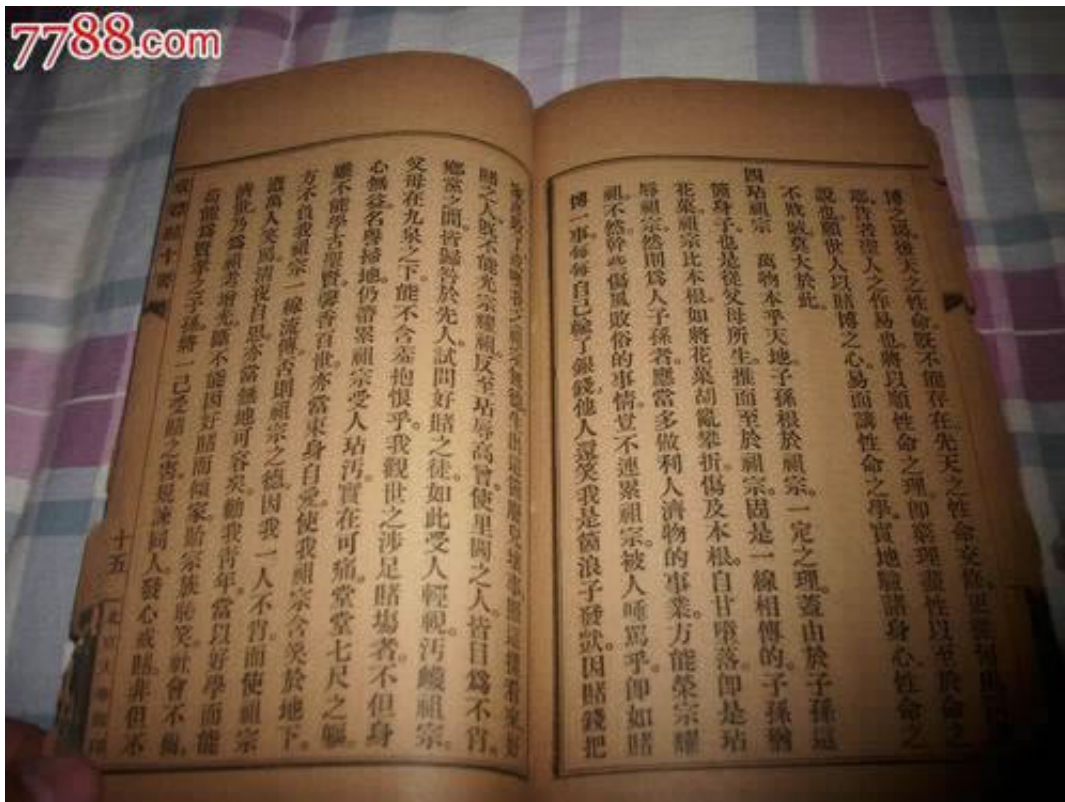 7788.com
博之場後天之性命既不能存在先天之性命
耶昔者聖人之作易也將以順性命之理即窮理盡性以至於命之
說也願世人以賭博之心易而講性命之學實地驗諸身心性命之
不戕賊莫大於此
四玷祖宗 萬物本乎天地子孫根於祖宗一定之理蓋由於子孫這
箇身子也是從父母所生推而至於祖宗固是一線相傳的子孫猶
花菓祖宗比本根如將花菓胡亂攀折傷及本根自甘墮落即是玷
辱祖宗然則爲人子孫者應當多做利人濟物的事業方能榮宗耀
祖不然幹些傷風敗俗的事情豈不連累祖宗被人唾罵乎即如賭
博一事每每自己輸了銀錢他人還笑我是箇浪子發獃因賭錢把
賭之人既不能光宗耀祖反至玷辱高曾使里閭之人皆目爲不肖
鄉黨之間皆歸咎於先人試問好賭之徒如此受人輕視汚衊祖宗
父母在九泉之下能不含羞抱恨乎我觀世之涉足賭場者不但身
心無益名譽掃地仍帶累祖宗受人玷汚實在可痛堂堂七尺之軀
雖不能學古聖賢馨香百世亦當束身自愛使我祖宗含笑於地下
方不負我祖宗一線流傳否則祖宗之德因我一人不肖而使祖宗
遭萬人笑罵清夜自思亦當無地可容矣勸我靑年當以好學而能
濟世乃爲祖考增光斷不能因好賭而傾家貽宗族恥笑社會不齒
苟能爲賢孝之子孫將一己受賭之害規諫同人發心戒賭非但不
十五